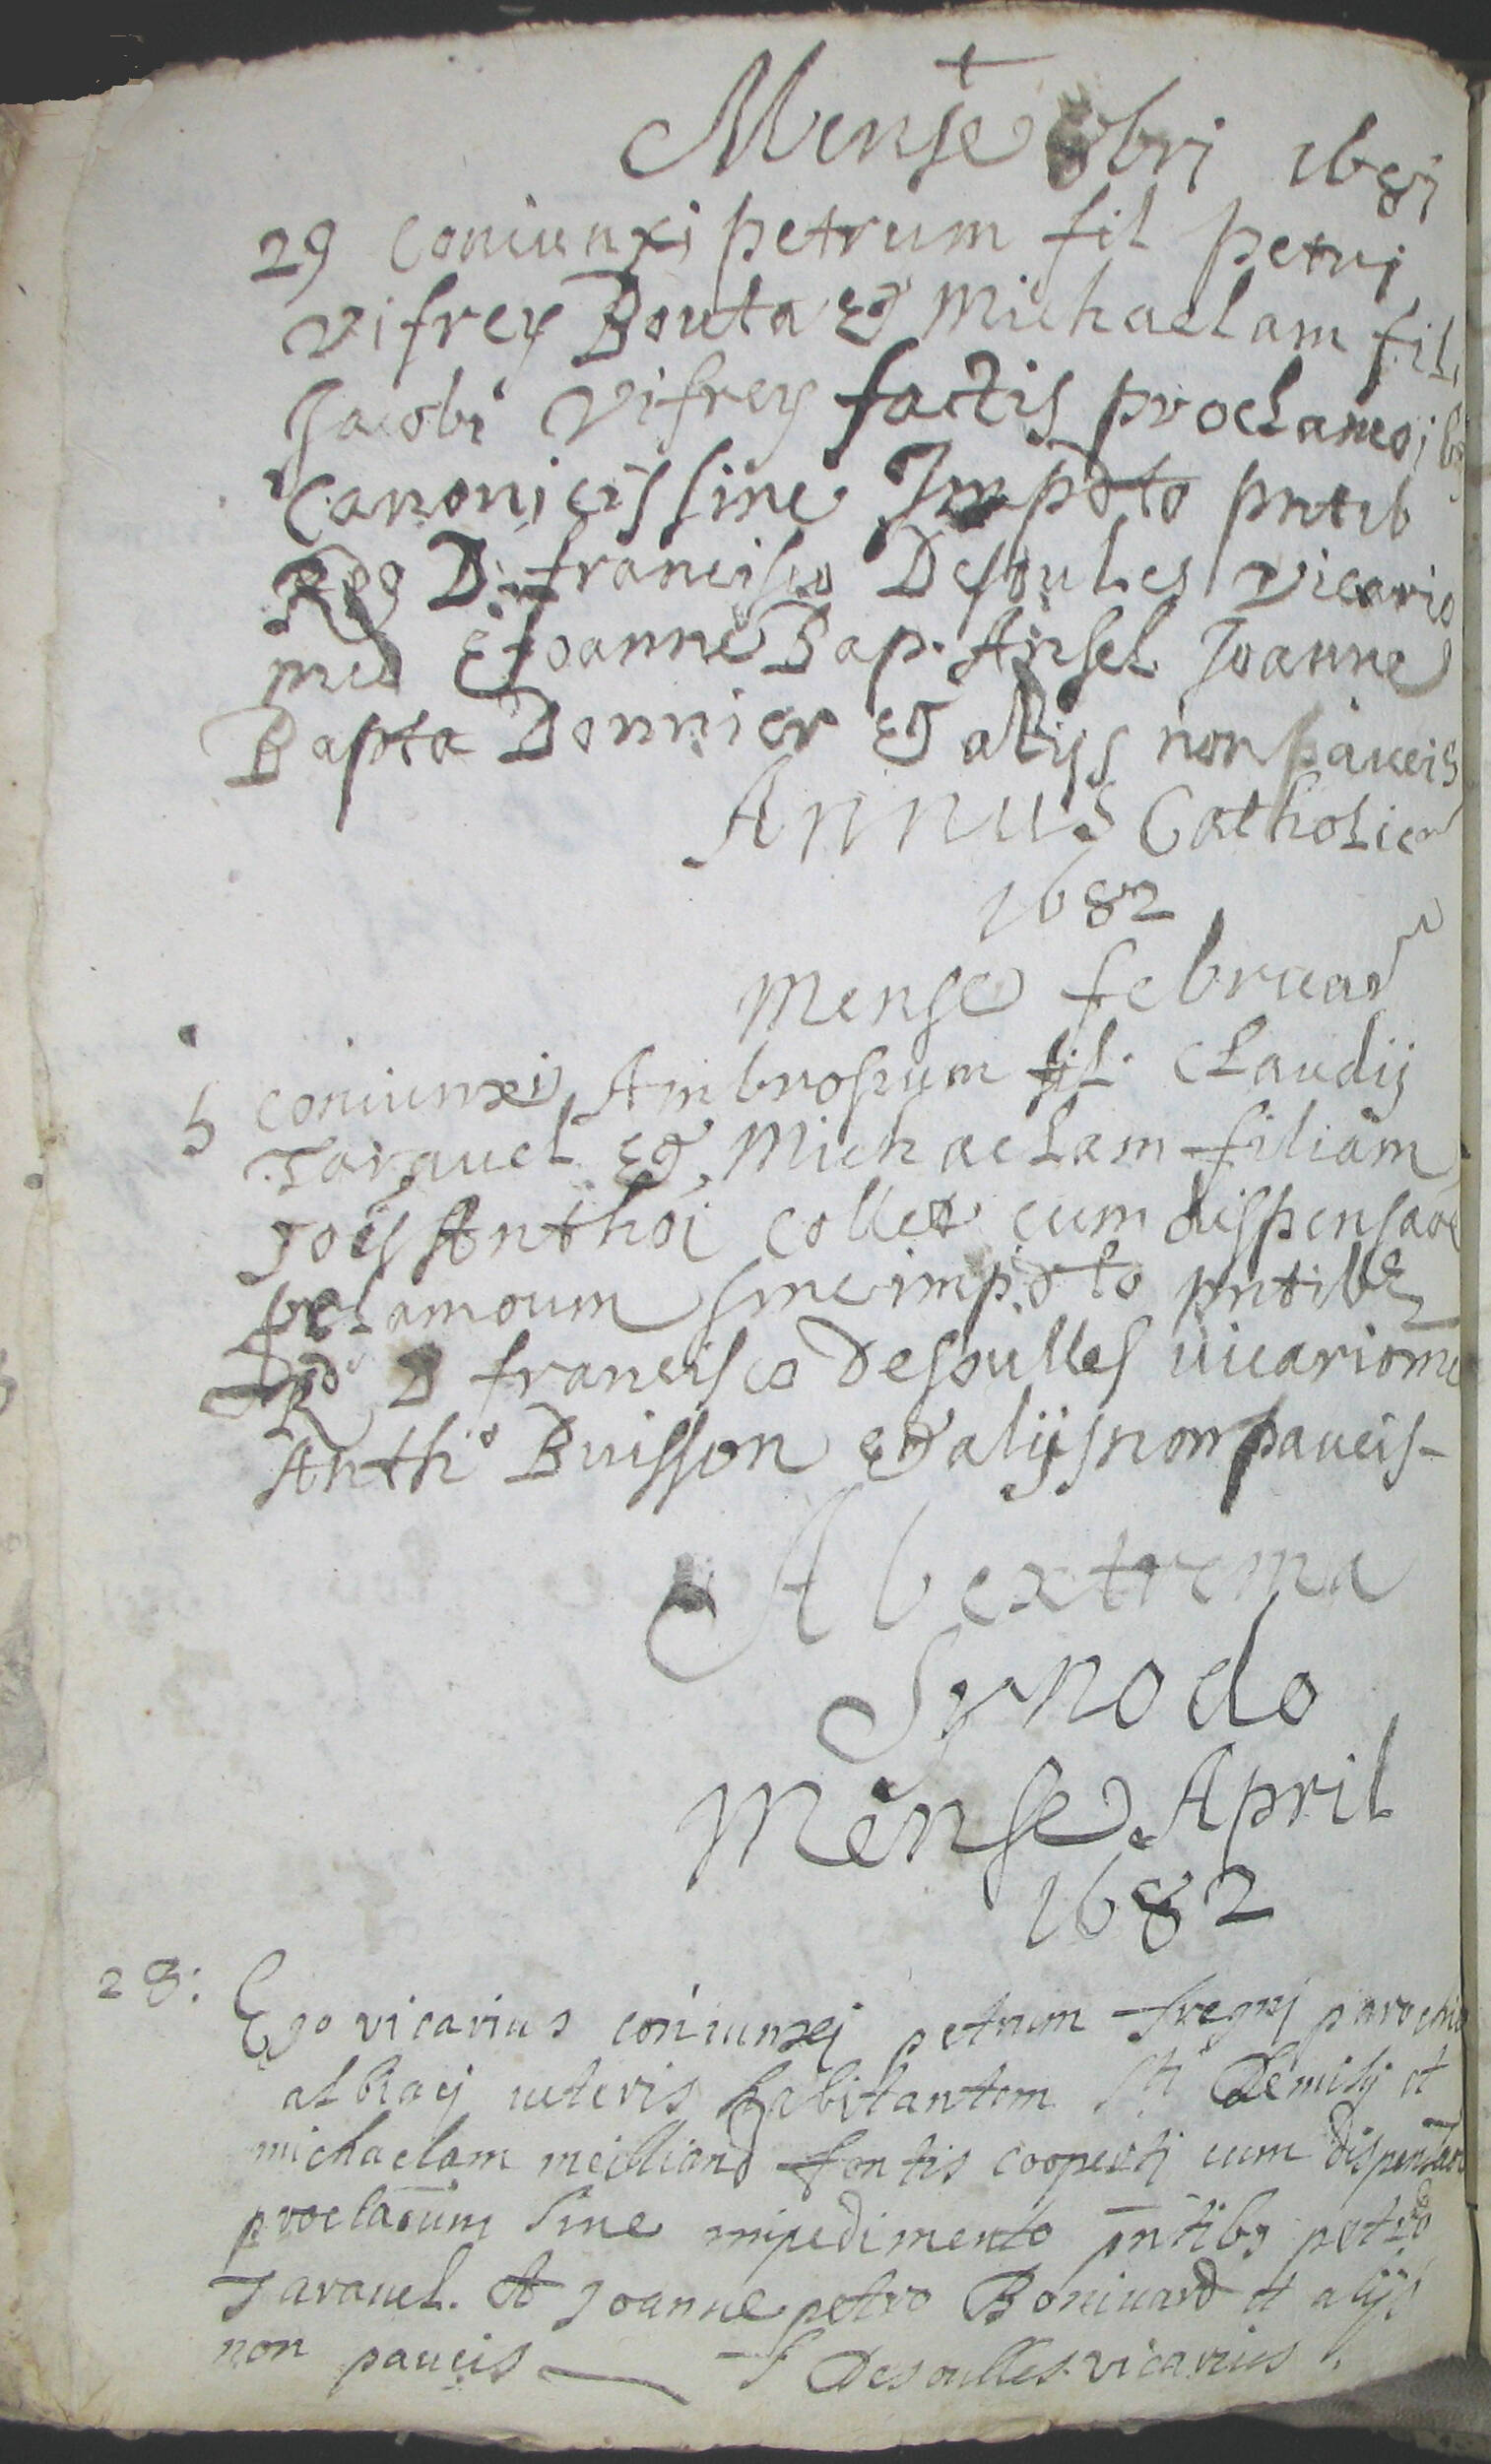 +
Mense 8bri 1681
29 coniunxi petrum fil petri
Vifrey Bouta et Michaelam fil.
Jacobi Vifrey factis proclamoibs
Canonicis sine Impdto pntib
Rdo D. francisco Desoules vicario
meo et Joanne Bap. Ansel Joanne
Bapta Bonnier et alijs non paucis
Annus Catholicr
1682
Mense februar
5 coniunxi Ambrosium fil. Claudij
Taravel et Michaelam filiam
Jois Anthoi collet cum dispensaoe
proclamoum sine impdto pntibs
Rdo D francisco Desoulles vicario meo
Antho Buisson et alijs non paucis -
Ab extrema
Synodo
Mense April
1682
28: Ego vicarius coniunxi petrum Tregni parochia
albiacj veteris habitantem sti Remigij et
michaelam meilliand fontis cooperti cum dispensaoe
proclaoum sine impedimento pntibs petro
Taravel. et Joanne petro Bonivard et alijs
non paucis — F Desoulles vicarius